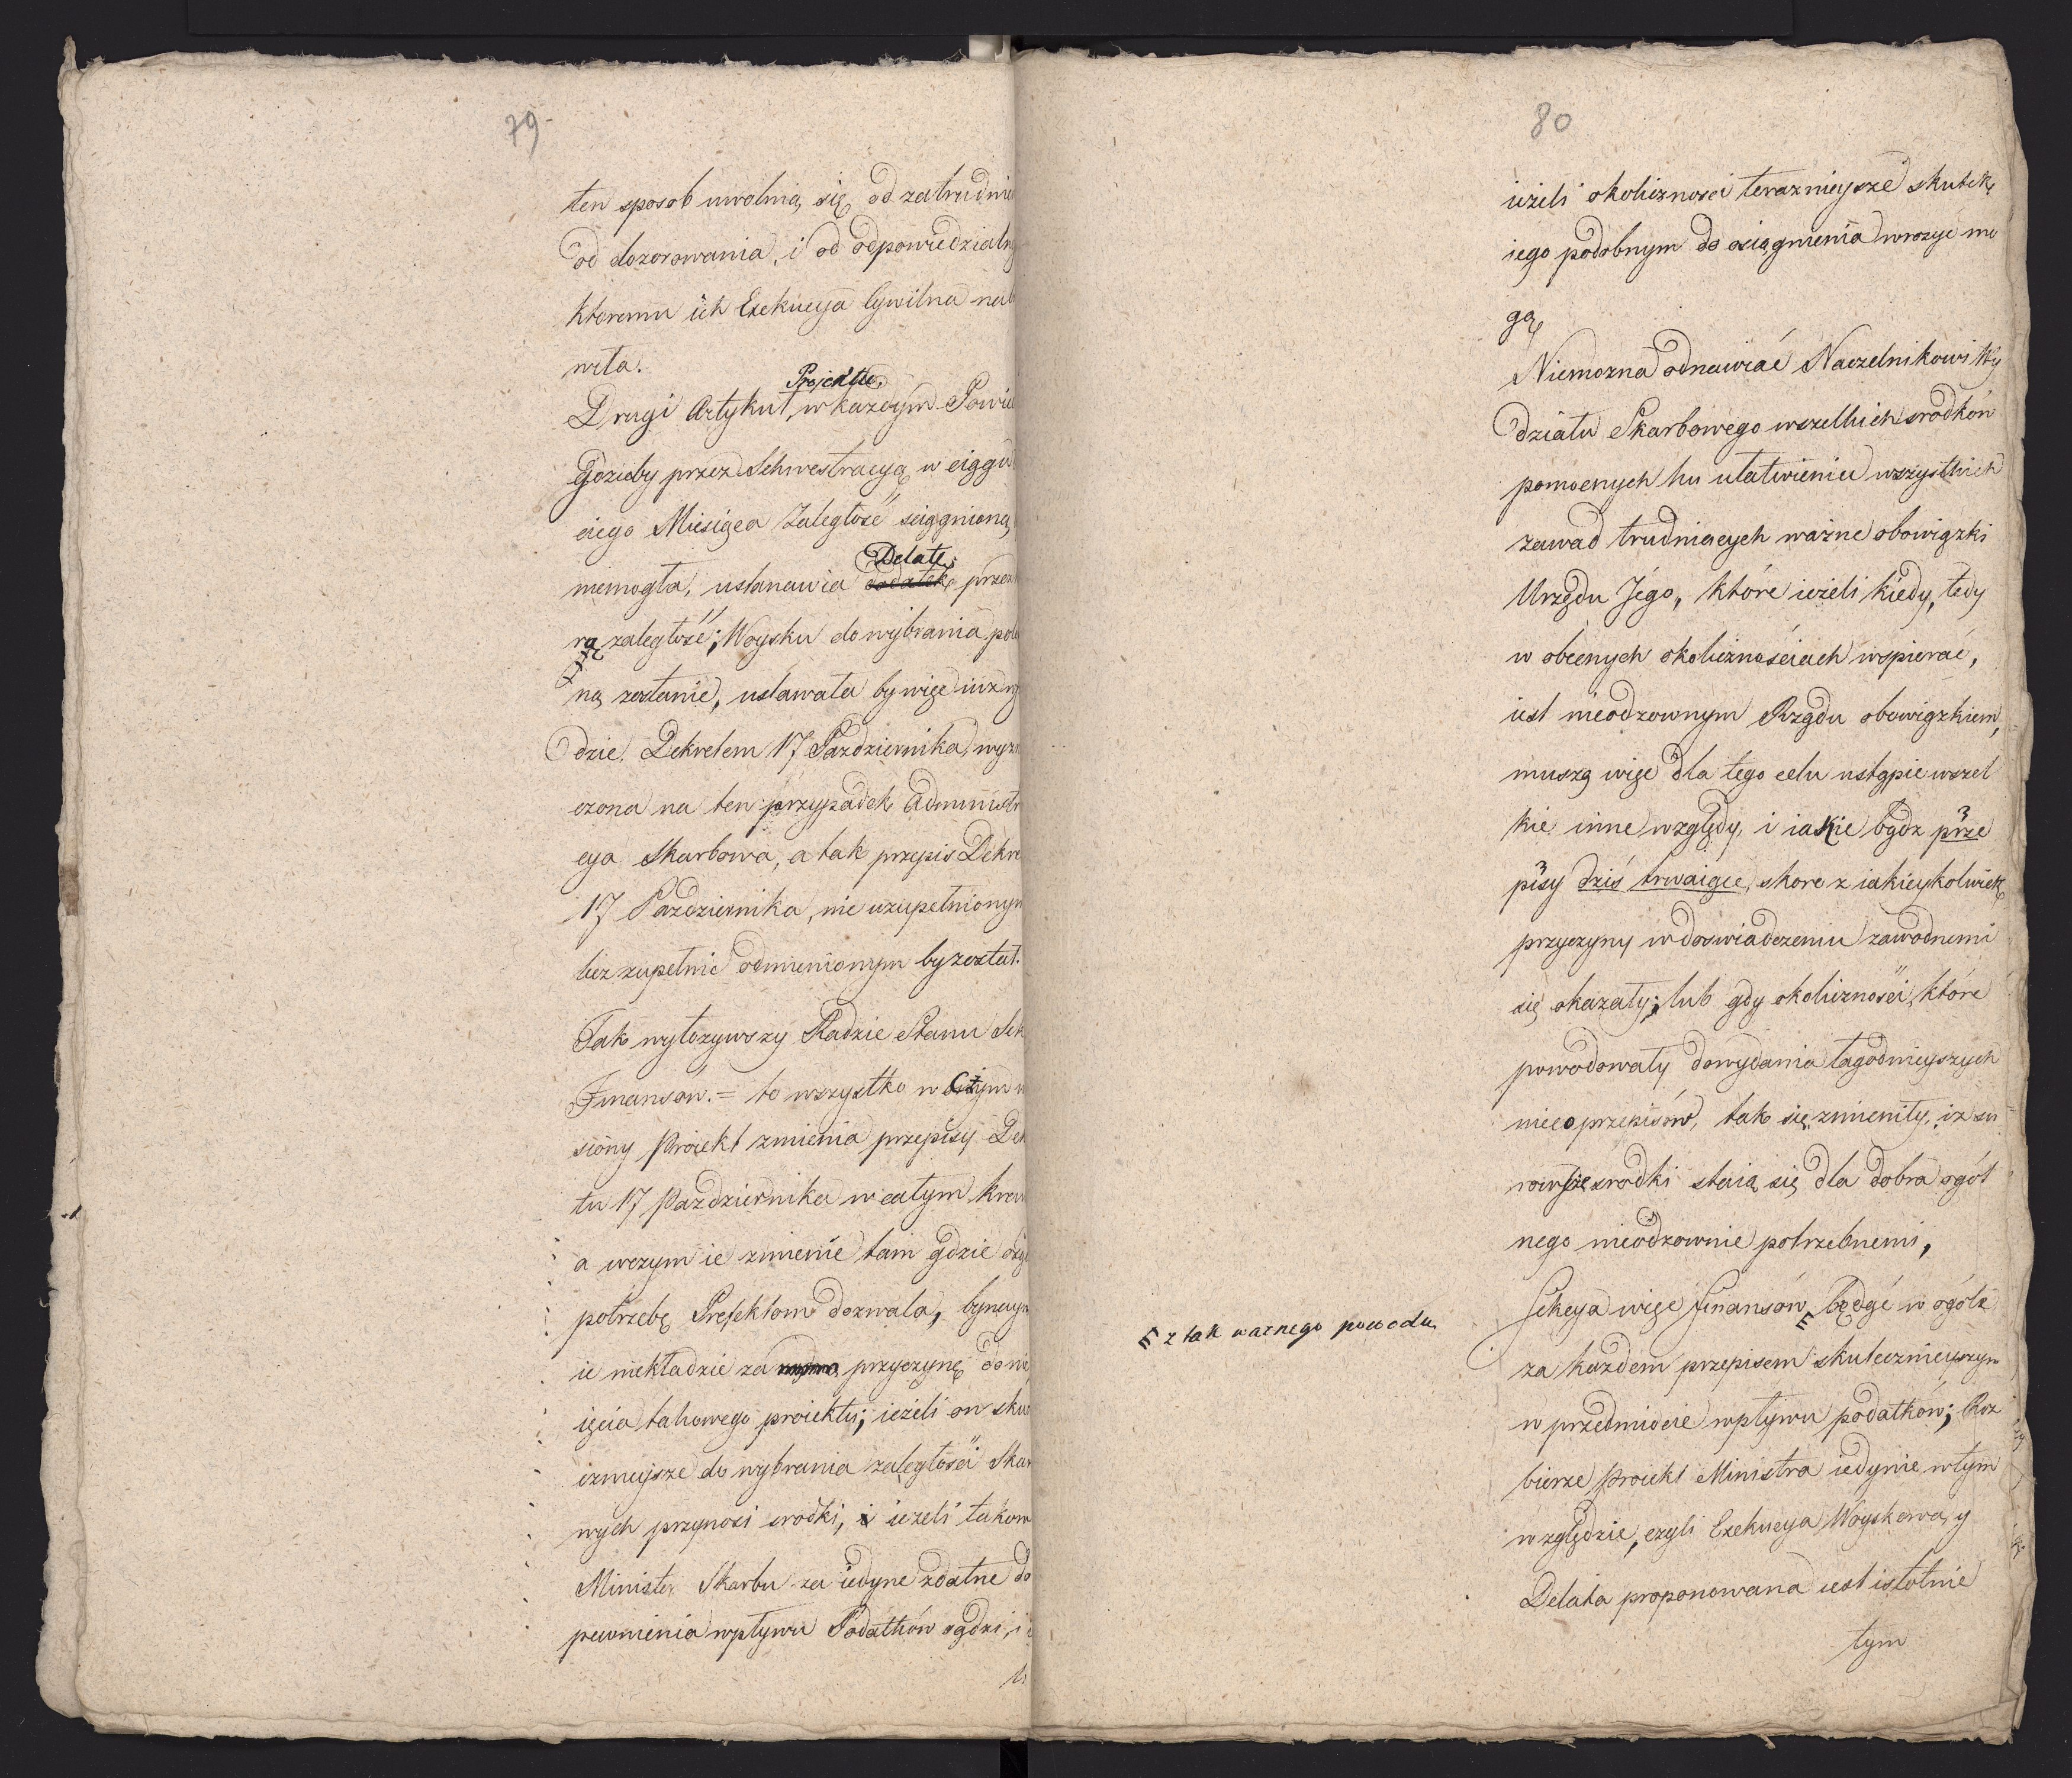 79
ten sposob uwolnią się od zatrudnie
od dozorowania, i od odpowiedzialn
ktoremu ich Exekucya Cywilna nal
wała.
Projektu,
Drugi Artykuł w każdym Powie
gdzieby przez Sekwestracyą w ciągu
ciego Miesiąca zaległość ściągnioną
Delatę
niemogła, ustanawia dodatek, przez
rą zaległość; Woysku do wybrania pole
ną zostanie, ustawała by więc iuż w
dzie Dekretem 17 Pazdziernika wyzn
czona na ten przypadek Administr
cya Skarbowa, a tak przepis Dekre
17 Pazdziernika, nie uzupełnionym
lecz zupełnie odmienionym by został.
Tak wyłożywszy Radzie Stanu Sek
Finansów. = to wszystko w czym w
siony Proiekt zmienia przepisy Dek
tu 17 Pazdziernika w całym kra
a wczym ie zmienie tam gdzie
potrzebę Prefektom dozwala, bynaym
ie niekładzie za przyczynę do nie
ięcia takowego proiektu; ieżeli on sku
cznieysze do wybrania zaległości Skar
wych przynosi srodki, i ieżeli takow
Minister Skarbu za iedyne zdatne do
pewnienia wpływu Podatków sądzi, i
80
ieżeli okoliczności teraznieysze skutek
iego podobnym do osiągnienia wrożyć mo
gą,
Niemożna odmawiać Naczelnikowi Wy
działu Skarbowego wszelkich srodków
pomocnych ku ułatwieniu wszystkich
zawad trudniących ważne obowiązki
Urzędu Jego, które ieżeli kiedy, tedy
w obecnych okolicznościach wspierać,
iest nieodzownym Rządu obowiązkiem,
muszą więc dla tego celu ustąpić wszel
kie inne względy, i iakie bądz prze
pisy dziś trwaiące, skoro z iakieykolwiek
przyczyny w doswiadczeniu zawodnemi
się okazały; lub gdy okoliczności, które
powodowały do wydania łagodnieyszych
nieco przepisów, tak się zmieniły, iż su
rowsze srodki staią się dla dobra ogół
nego nieodzownie potrzebnemi,
Sekcya więc Finansów, będąć w ogóle
z tak waznego powodu
za każdem przepisem skutecznieyszym
w przedmiocie wpływu podatków; Roz
bierze Proiekt Ministra iedynie w tym
względzie, czyli Exekucya Woyskowa, y
Delata proponowana iest istotnie
tym